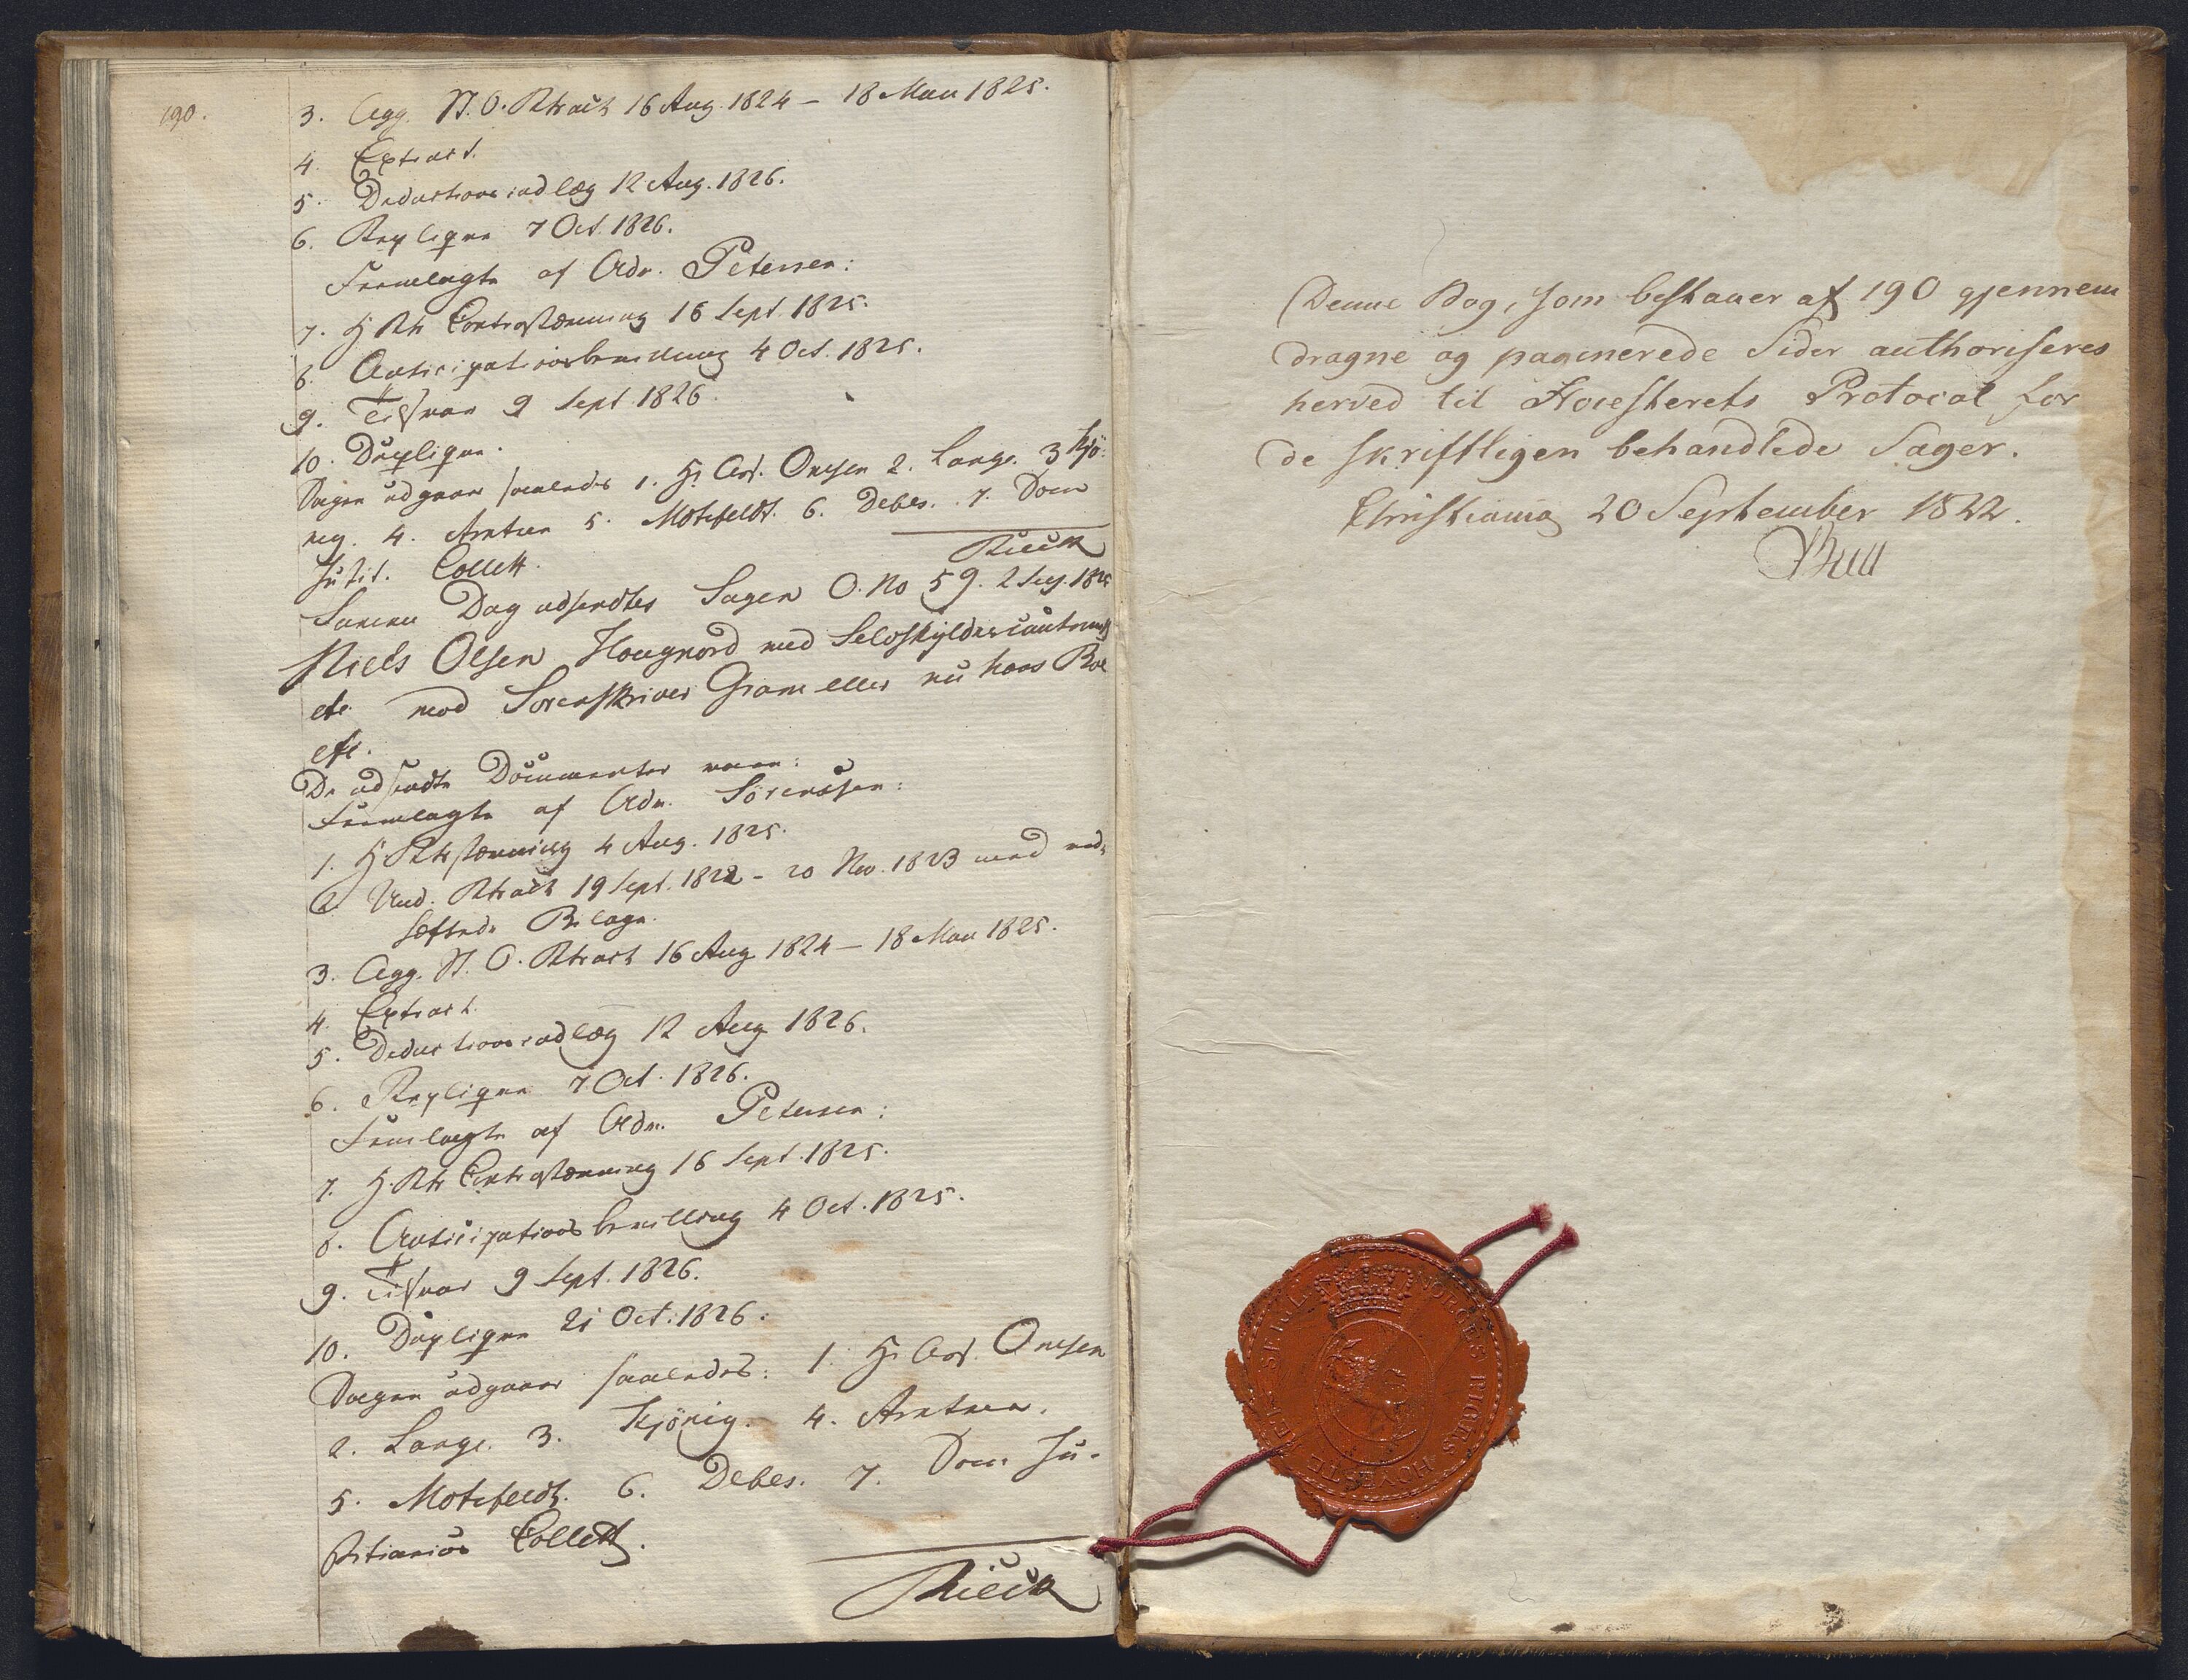 190.
3. Agg. St. O. Rtsact 16 Aug. 1824 – 18 Mai 1825.
4. Extract.
5. Deductionsindlæg 12 Aug. 1826.
6. Repliqve 7 Oct. 1826.
Fremlagte af Adv. Petersen:
7. H Rts Contrastævning 16 Sept. 1825.
8. Anticipationsbevilling 4 Oct. 1825.
9. Tilsvar 9 Sept. 1826.
10. Dupliqve.
Sagen udgaaer saaledes 1. Hr Ass. Omsen 2. Lange. 3 Kjö-
nig. 4. Arntzen 5. Motzfeldt. 6. Debes. 7. Dom
Justit. Collett.
Rieck
Samme Dag udsendtes Sagen O. No 59. 2 Sess. 1825
Niels Olsen Hougnord med Selvskyldnercautionist
etc. mod Sorenskriver Gram eller nu hans Boe
etc.
De udsendte Documenter vare:
Fremlagte af Adv. Sörenssen:
1. H Rtsstævning 4 Aug. 1825.
2. Und. Rtsact 19 Sept. 1822 – 20 Nov. 1823 med ved-
hæftede Bilage.
3. Agg. St. O. Rtsact 16 Aug. 1824 – 18 Mai 1825.
4. Extract.
5. Deductionsindlæg 12 Aug 1826.
6. Repliqve 7 Oct. 1826.
Fremlagte af Adv. Petersen:
7. H Rts Contrastævning 16 Sept. 1825.
8. Anticipationsbevilling 4 Oct. 1825.
9. Tilsvar 9 Sept. 1826.
10. Dupliqve 21 Oct. 1826.
Sagen udgaaer saaledes: 1. Hr Ass. Omsen
2. Lange. 3. Kjönig. 4. Arntzen.
5. Motzfeldt. 6. Debes. 7. Dom Ju-
stitiarius Collett.
Rieck
Denne Bog, som bestaaer af 190 gjennem
dragne og paginerede Sider authoriseres
herved til Hoiesterets Protocol for
de skriftligen behandlede Sager.
Christiania 20 September 1822.
Bull
NORGES RIGES HOYESTE RETS SEGL